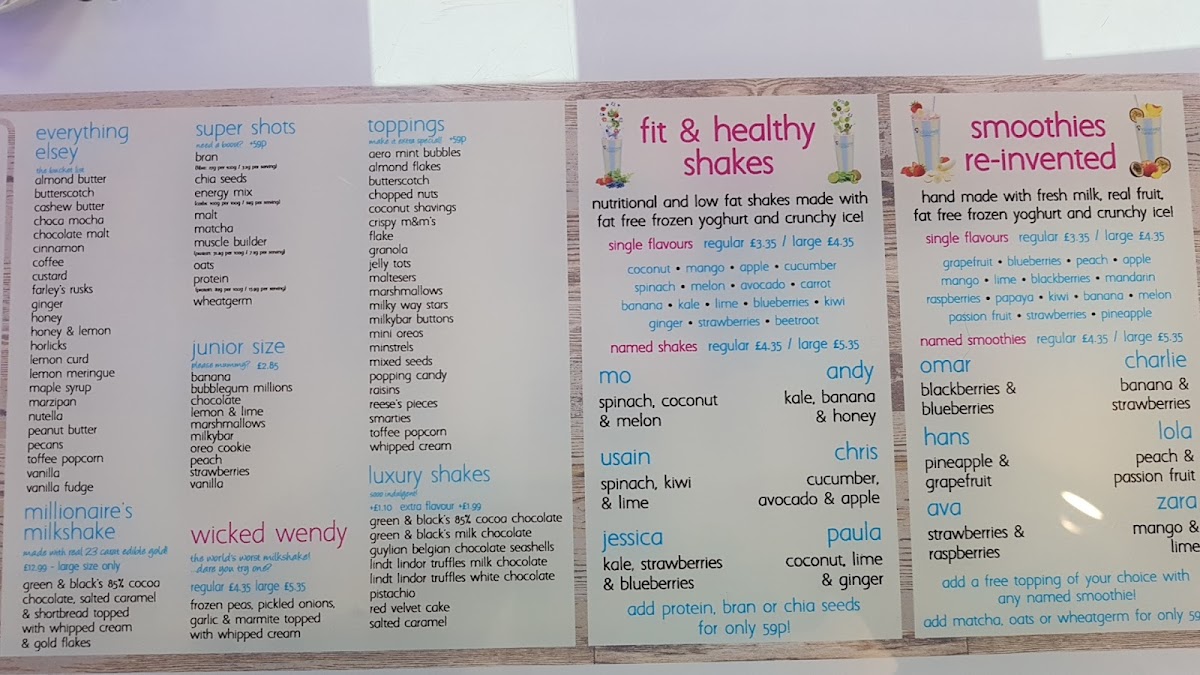 everything
elsey
the bonkas list
almond butter
butterscotch
cashew butter
choca mocha
chocolate malt
cinnamon
coffee
custard
farley's rusks
ginger
honey
honey & lemon
horlicks
lemon curd
lemon meringue
maple syrup
marzipan
nutella
peanut butter
pecans
toffee popcorn
vanilla
vanilla fudge
millionaire's
milkshake
made with real 23 carat edible gold!
£12.99 - large size only
green & black's 85% cocoa
chocolate, salted caramel
& shortbread topped
with whipped cream
& gold flakes
super shots
need a boost? +59p
bran
chia seeds
energy mix
malt
matcha
muscle builder
oats
protein
wheatgerm
junior size
please mummy? £2.85
banana
bubblegum millions
chocolate
lemon & lime
marshmallows
milkybar
oreo cookie
peach
strawberries
vanilla
wicked wendy
the world's worst milkshake!
...dare you try one?
regular £4.35 large £5.35
frozen peas, pickled onions,
garlic & marmite topped
with whipped cream
toppings
make it extra special! +59p
aero mint bubbles
almond flakes
butterscotch
chopped nuts
coconut shavings
crispy m&m's
flake
granola
jelly tots
maltesers
marshmallows
milky way stars
milkybar buttons
mini oreos
minstrels
mixed seeds
popping candy
raisins
reese's pieces
smarties
toffee popcorn
whipped cream
luxury shakes
sooo indulgent!
+£1.10 extra flavour +£1.99
green & black's 85% cocoa chocolate
green & black's milk chocolate
guylian belgian chocolate seashells
lindt lindor truffles milk chocolate
lindt lindor truffles white chocolate
pistachio
red velvet cake
salted caramel
fit & healthy
shakes
nutritional and low fat shakes made with
fat free frozen yoghurt and crunchy ice!
single flavours regular £3.35 / large £4.35
coconut • mango • apple • cucumber
spinach • melon • avocado • carrot
banana • kale • lime • blueberries • kiwi
ginger • strawberries • beetroot
named shakes regular £4.35 / large £5.35
mo
spinach, coconut
& melon
andy
kale, banana
& honey
usain
spinach, kiwi
& lime
chris
cucumber,
avocado & apple
jessica
kale, strawberries
& blueberries
paula
coconut, lime
& ginger
add protein, bran or chia seeds
for only 59p!
smoothies
re-invented
hand made with fresh milk, real fruit,
fat free frozen yoghurt and crunchy ice!
single flavours regular £3.35 / large £4.35
grapefruit • blueberries • peach • apple
mango • lime • blackberries • mandarin
raspberries • papaya • kiwi • banana • melon
passion fruit • strawberries • pineapple
named smoothies regular £4.35 / large £5.35
omar
blackberries &
blueberries
charlie
banana &
strawberries
hans
pineapple &
grapefruit
lola
peach &
passion fruit
ava
strawberries &
raspberries
zara
mango &
lime
add a free topping of your choice with
any named smoothie!
add matcha, oats or wheatgerm for only 59